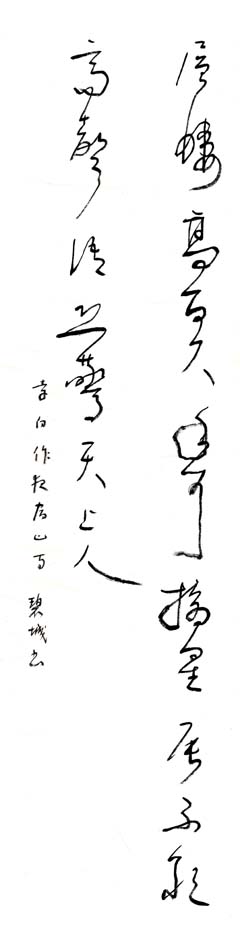 危樓高百尺手可摘星辰不敢
高聲語恐驚天上人
李白作夜宿山寺 碧城书